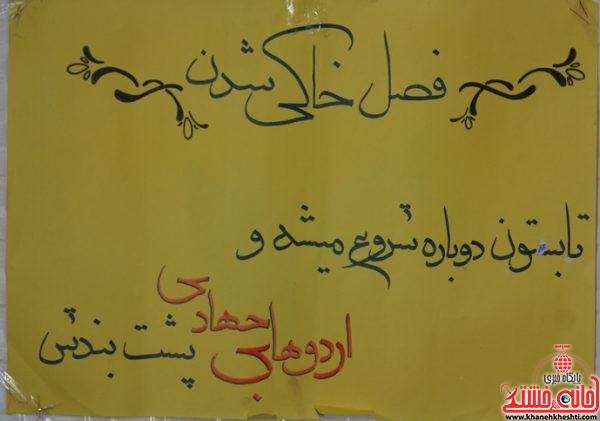 فصل خاکی شدن
تابستون دوباره شروع میشه و
اردوهای جهادی پشت بندش
پایگاه خبری
خانه خشتی
www.khanehkheshti.com